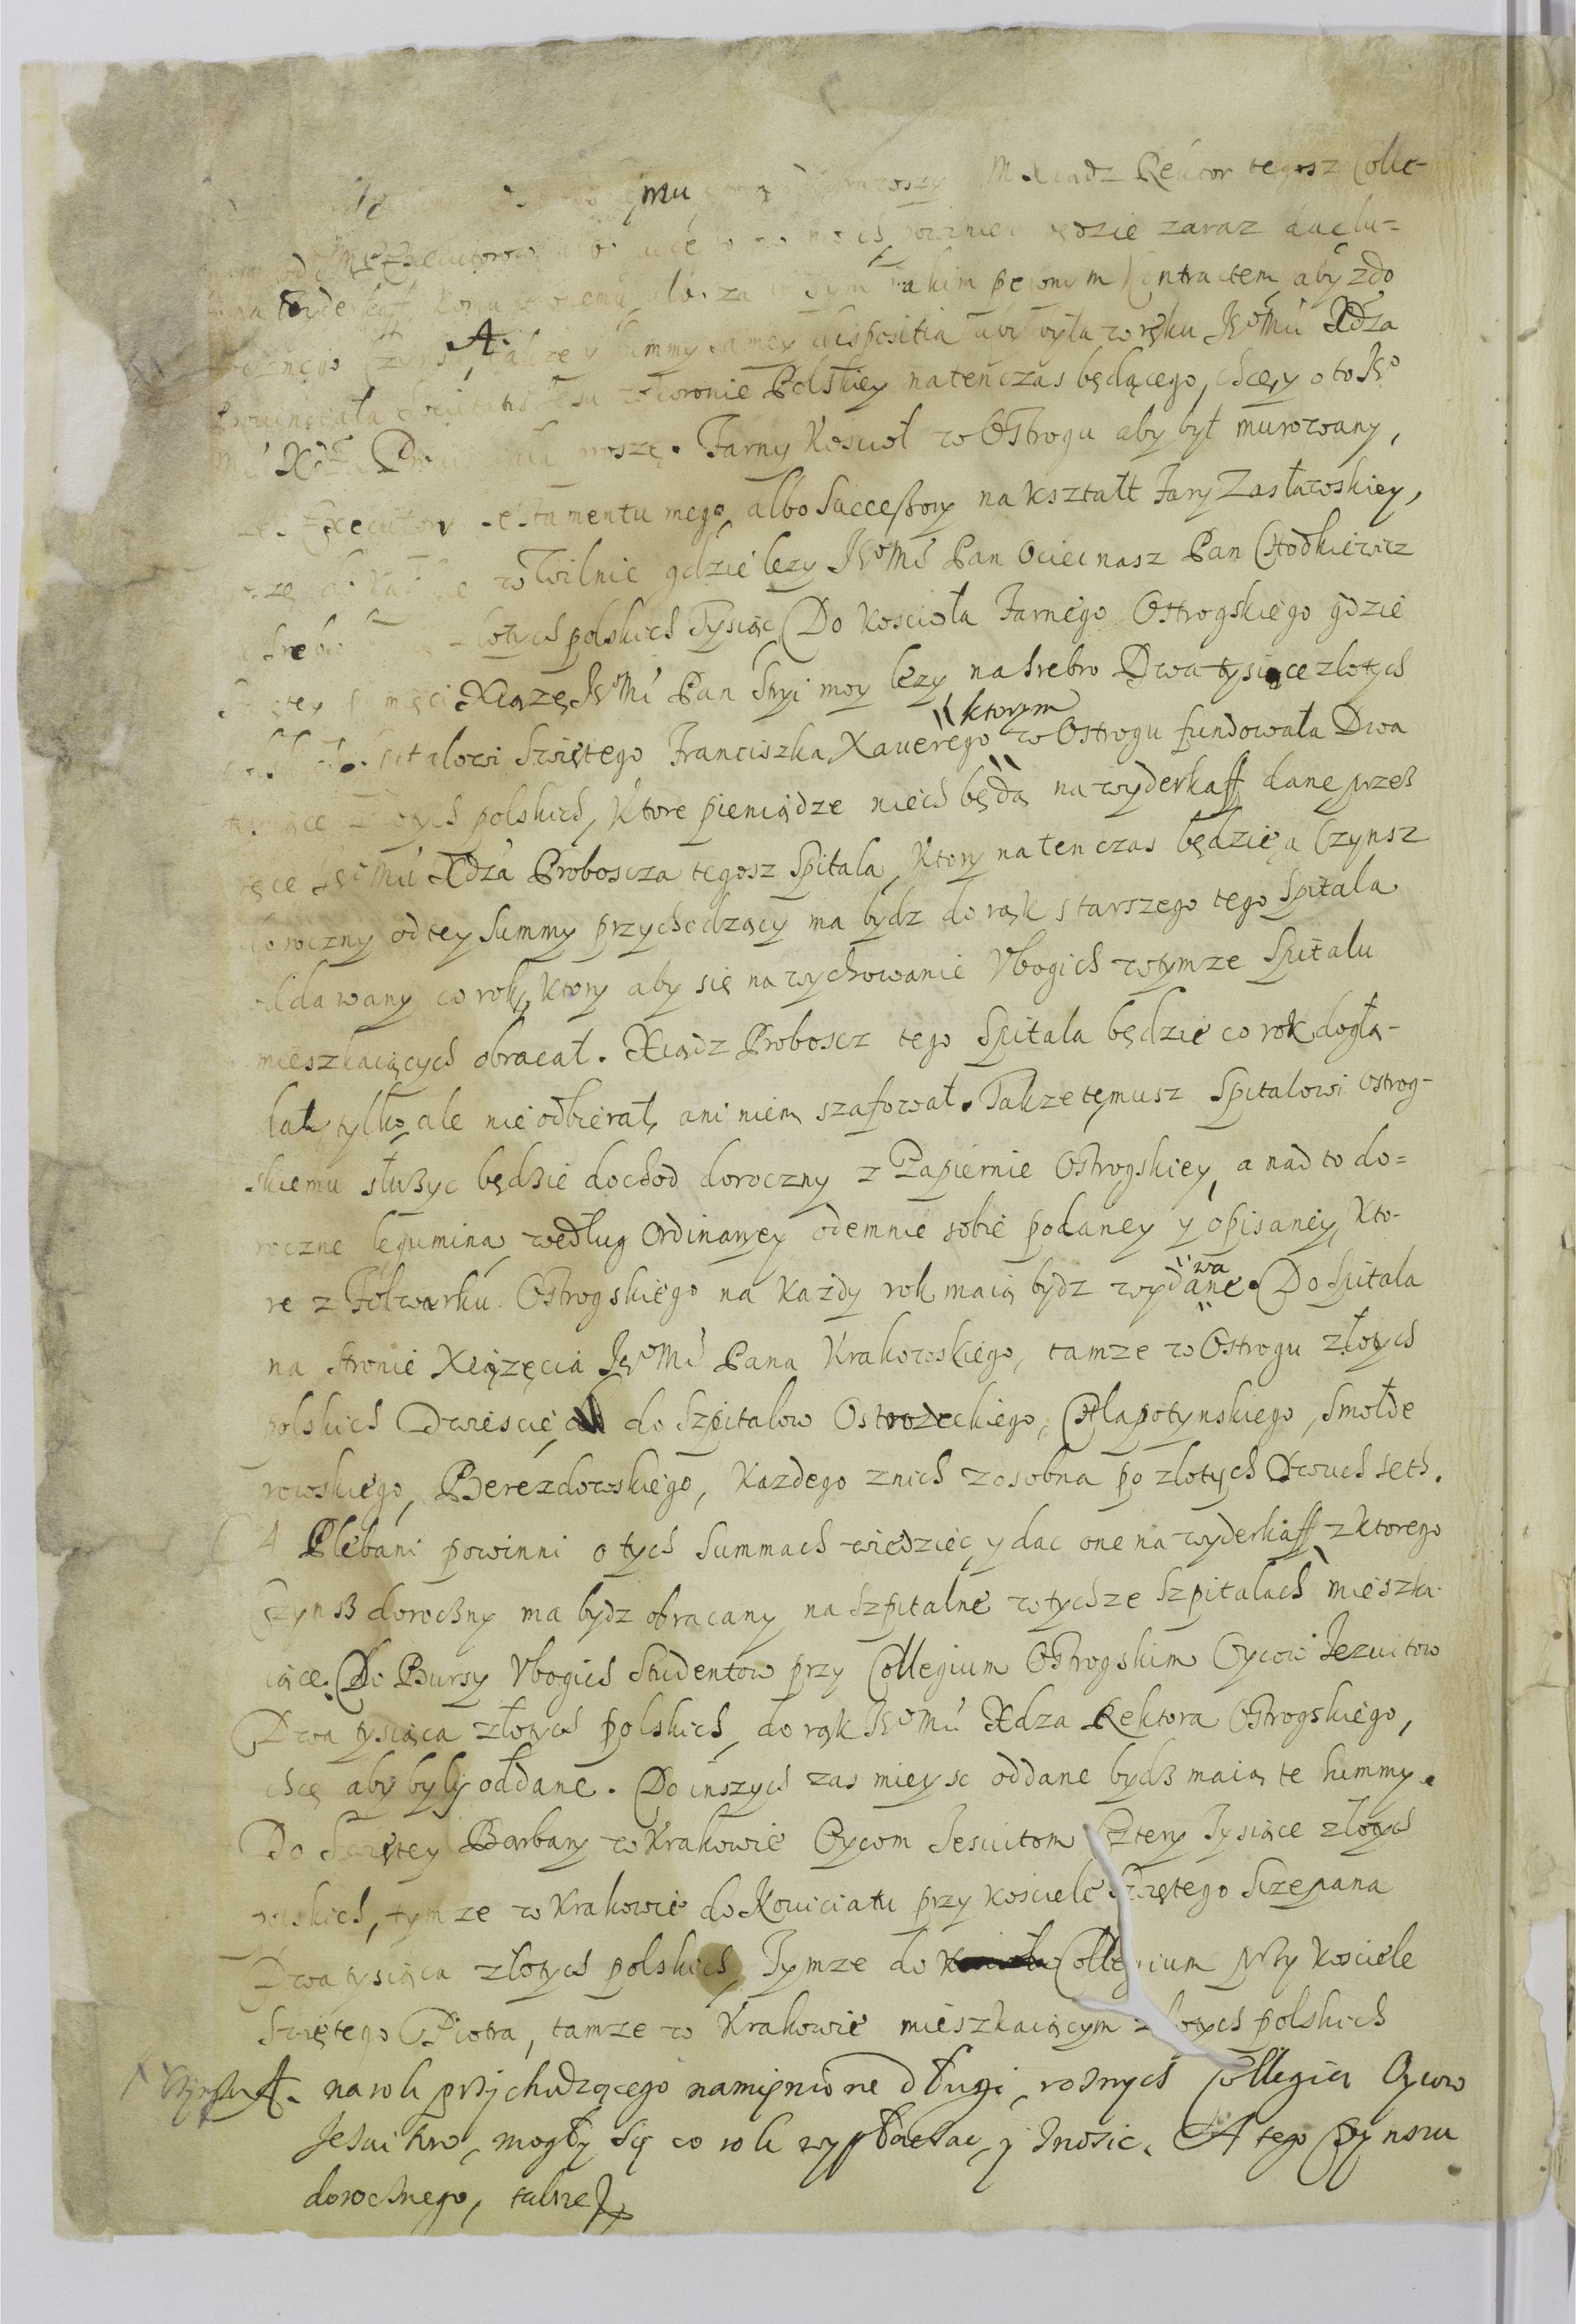 mu Xiądz Rektor tegosz Colle-
od będzie zaraz
na wyderkaff, albo za takim pewnym Contractem, aby zdo
rocznego Czynszu A. także y Summy samey dispositia aby była w ręku JeoMci Xdza
Prouinciała Societatis Jesu w Koronie Polskiey natenczas będącego, chcę, y o to Jeo
Mci Xdza proszę. Farny Kosciół w Ostrogu aby był murowany,
Executorowie testamentu mego, albo Successorowie na kształt Fary Zasławskiey,
w Wilnie gdzie lezy JeoMć Pan Ociec nasz Pan Chodkiewicz
na srebro złotych polskich Tysiąc, Do Koscioła Farnego Ostrogskiego gdzie
Xiążę JeoMć Pan Stryi moy lezy, na srebro Dwa tysiące złotych
Spitalowi Swiętego Franciszka Xauerego "ktorym w Ostrogu fundowała Dwa
tysiące złotych polskich, Ktore pieniądze niech będą na wyderkaff dane przez
ręce JeoMci Xdza Proboscza tegosz Spitala, Ktory na ten czas będzie, a Czynsz
doroczny od tey Summy przychodzący ma bydz do rąk starszego tego Spitala
oddawany co rok, Ktory aby się na wychowanie Vbogich w tymze Spitalu
mieszkaiących obracał. Xiądz Proboscz tego Spitala będzie co rok doglą-
dał tylko, ale nie odbierał, ani niem szafował. Takze temusz Spitalowi Ostrog-
skiemu służyc będzie dochod doroczny z Papiernie Ostrogskiey, a nad to do=
roczne legumina, według Ordinaryey odemnie sobie podaney y opisaney, Kto-
re z Folwarku Ostrogskiego na każdy rok maią bydz wyda"wane. Do Spitala
na stronie Xiążęcia JeoMci Pana Krakowskiego, tamze w Ostrogu złotych
polskich Dwiescie, do Szpitalow Ostrozeckiego, Chłapotynskiego, Smołde
rowskiego, Berezdowskiego, Kazdego z nich z osobna po złotych Dwuch seth.
A Plebani powinni o tych Summach wiedziec, y dac one na wyderkaff, z ktorego
Czynsz doroczny ma bydz obracany na Szpitalne w tychze Szpitalach mieszka-
iące. Do Bursy Vbogich Studentow przy Collegium Ostrogskim Oycow Jezuitow
Dwa tysiąca złotych polskich, do rąk JeoMci Xdza Rektora Ostrogskiego,
chcę aby były oddane. Do inszych zas mieysc oddane bydz maią te summy.
Do Swiętey Barbary w Krakowie Oycom Jesuitom Cztery Tysiące złotych
polskich, tymze w Krakowie do Nouiciatu przy kosciele Swiętego Sczepana
Dwa tysiąca złotych polskich, Tymze do Collegium przy kosciele
Swiętego Piotra, tamze w Krakowie mieszkaiącym złotych polskich
A. na rok przychodzącego namienione długi, roznych Collegia Oycow
Jesuitow, mogły się co rok wypłacac, y znosic. A tego Czynszu
dorocznego, takze